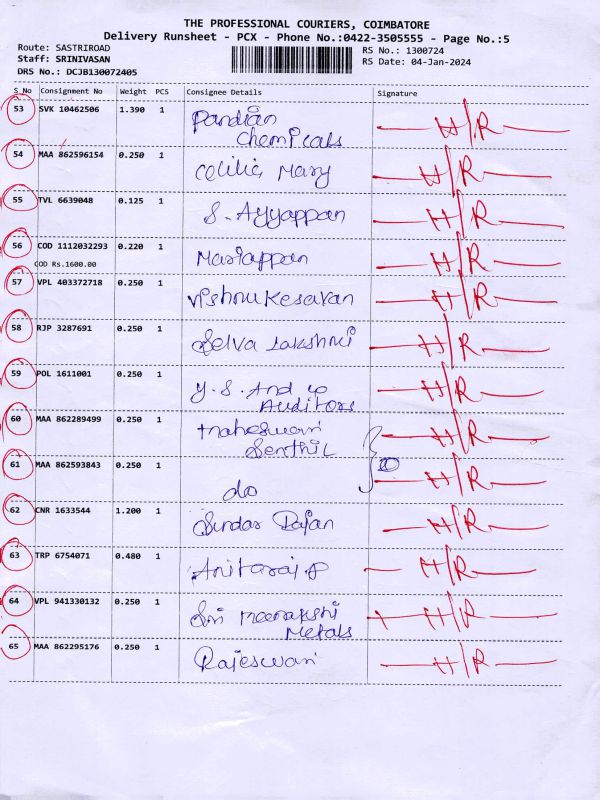 THE PROFESSIONAL COURIERS, COIMBATORE
Delivery Runsheet - PCX - Phone No.:0422-3505555 - Page No.:5
Route: SASTRIROAD
Staff: SRINIVASAN
DRS No.: DCJB130072405
RS No.: 1300724
RS Date: 04-Jan-2024
S No Consignment No Weight PCS Consignee Details Signature
53 SVK 10462506 1.390 1 Pandian H/R
Chemicals
54 MAA 862596154 0.250 1 Celilia Mary H/R
55 TVL 6639048 0.125 1 S. Ayyappan H/R
56 COD 1112032293 0.220 1 Mariappan H/R
COD Rs.1600.00
57 VPL 403372718 0.250 1 Vishnu Kesavan H/R
58 RJP 3287691 0.250 1 Selva Lakshmi H/R
59 POL 1611001 0.250 1 Y. S. And Co H/R
Auditors
60 MAA 862289499 0.250 1 Maheswari H/R
Senthil
61 MAA 862593843 0.250 1 do H/R
62 CNR 1633544 1.200 1 Sundar Rajan H/R
63 TRP 6754071 0.480 1 Anitaraj H/R
64 VPL 941330132 0.250 1 Sri Meenakshi H/R
Metals
65 MAA 862295176 0.250 1 Rajeswari H/R